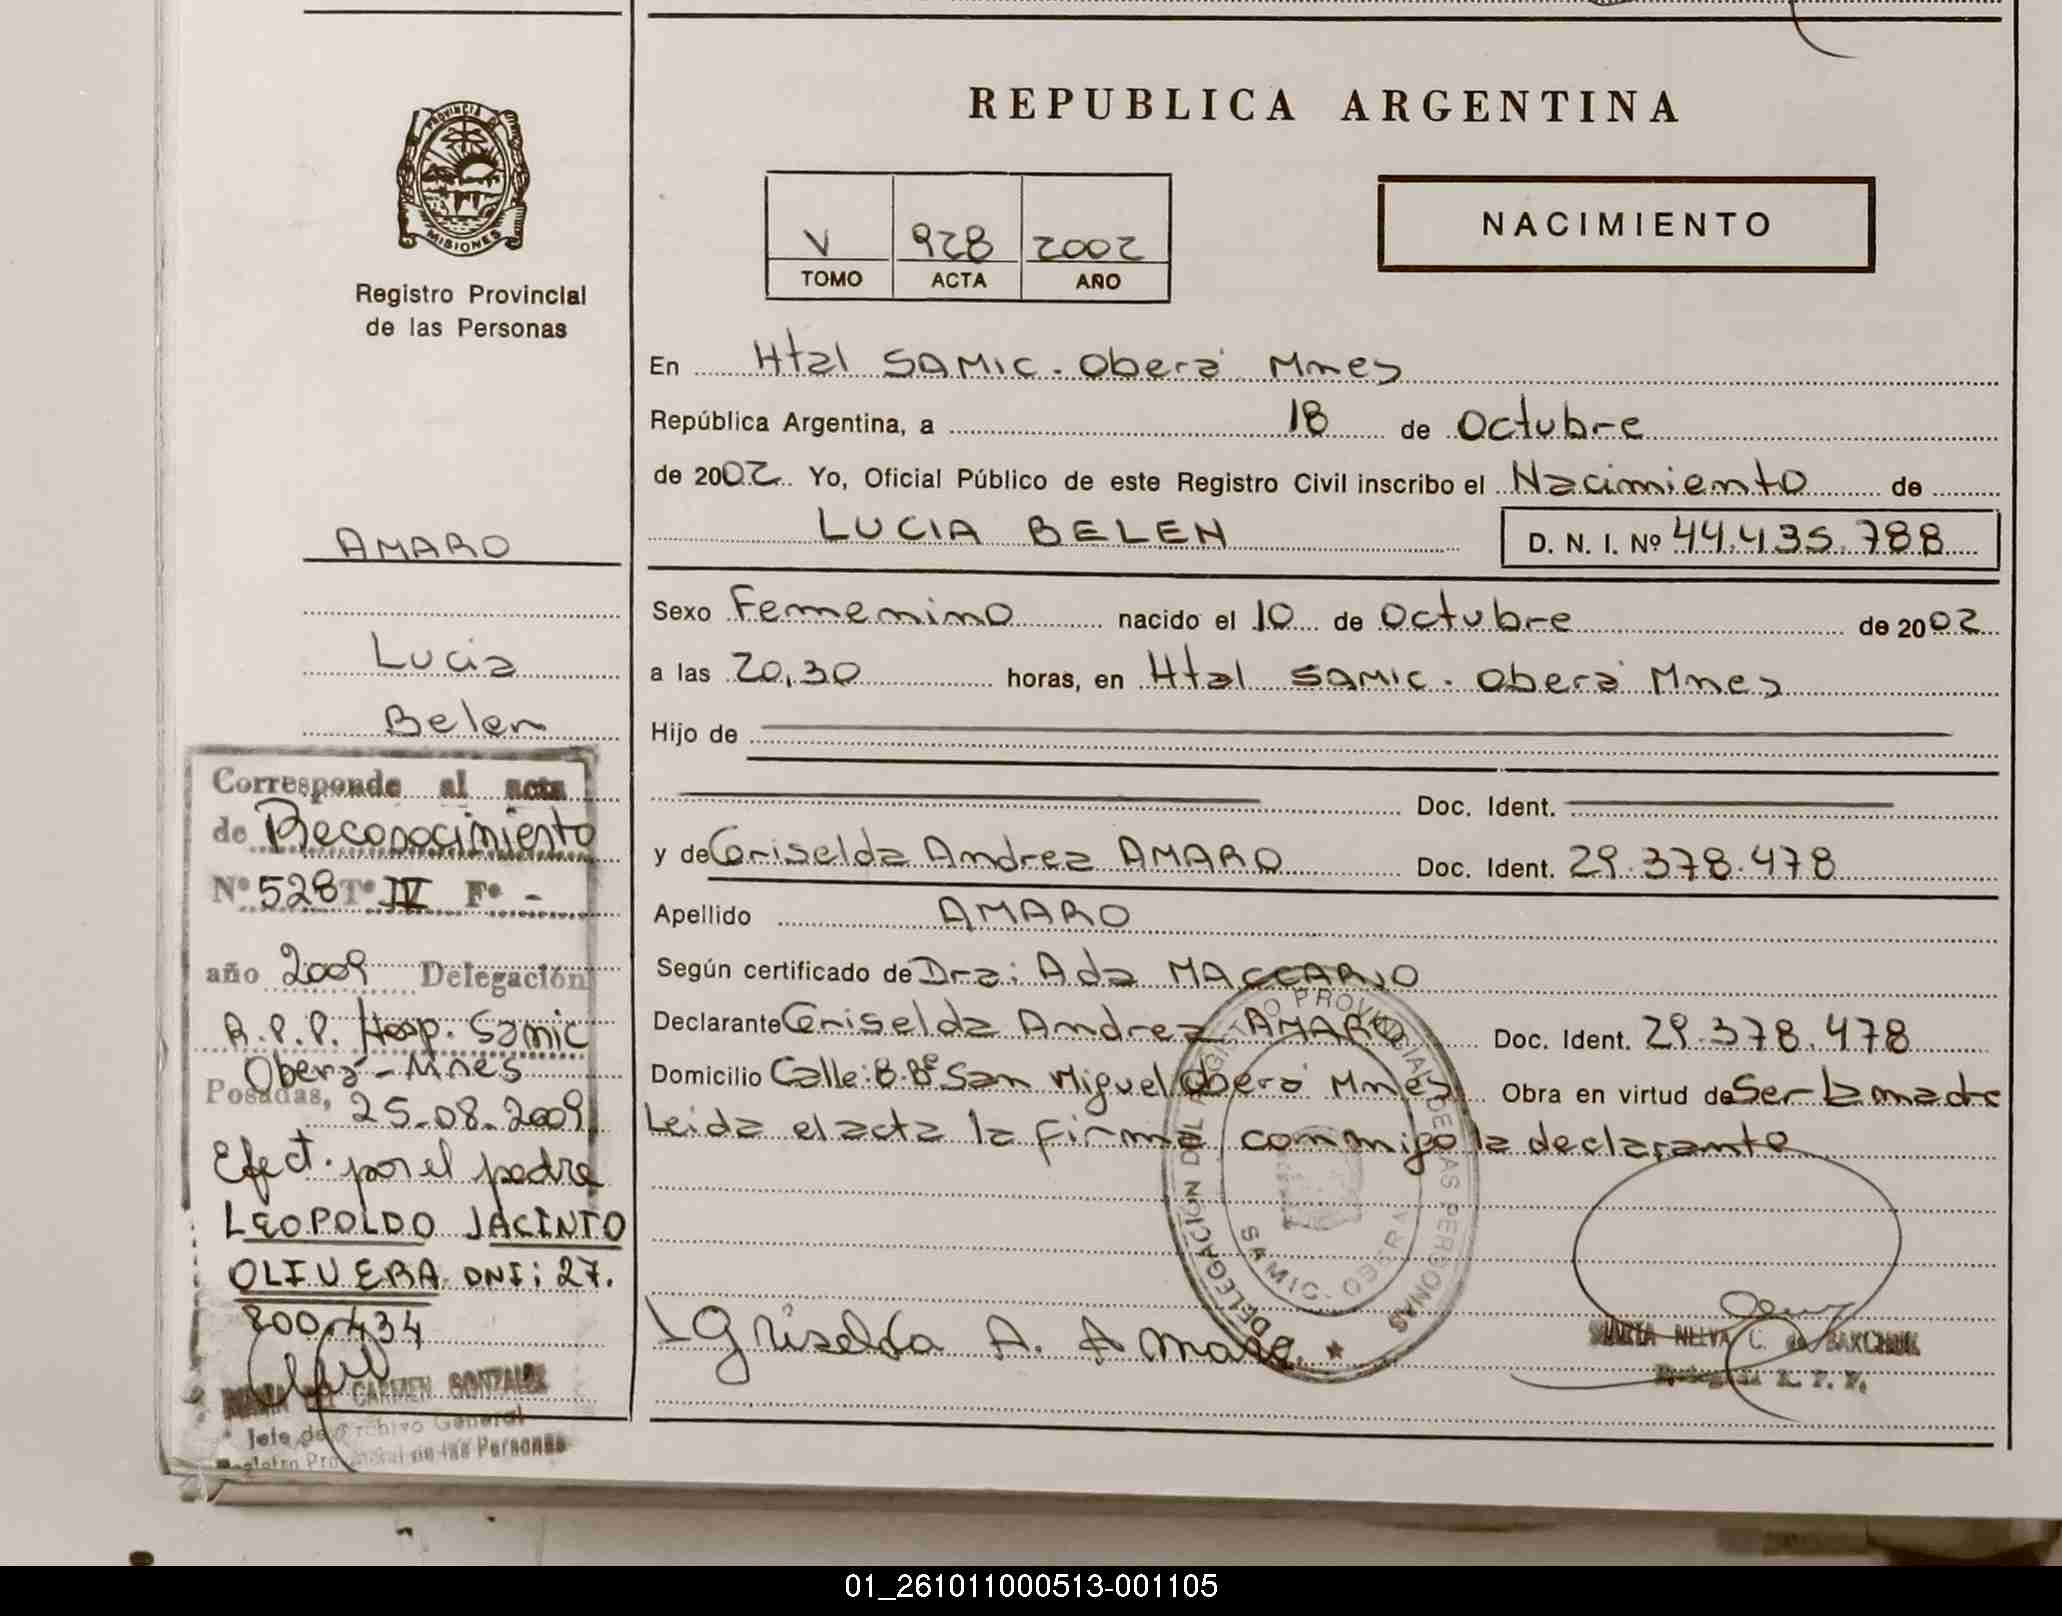 REPUBLICA ARGENTINA
PROVINCIA DE
MISIONES
Registro Provincial
de las Personas
V 928 2002
TOMO ACTA AÑO
NACIMIENTO
En Htal SAMIC. Oberá Mnes
República Argentina, a 18 de Octubre
de 2002 Yo, Oficial Público de este Registro Civil inscribo el Nacimiento de
LUCIA BELEN D. N. I. Nº 44.435.788
Sexo Femenino nacido el 10 de Octubre de 2002
a las 20,30 horas, en Htal SAMIC. Oberá Mnes
Hijo de
Doc. Ident.
y de Griselda Andrea AMARO Doc. Ident. 29.378.478
Apellido AMARO
Según certificado de Dra: Ada MACCARIO
Declarante Griselda Andrea AMARO Doc. Ident. 29.378.478
Domicilio Calle: B. Bº San Miguel Oberá Mnes Obra en virtud de Ser la madre
Leida el acta la firma conmigo la declarante
Griselda A. Amaro
DELEGACIÓN DEL REGISTRO PROVINCIAL DE LAS PERSONAS
SAMIC - OBERA
C. de
R. P. P.
AMARO
Lucia
Belen
Corresponde al acta
de Reconocimiento
Nº 528 Tº IV Fº -
año 2009 Delegación
R.P.P. Hosp. Samic
Oberá - Mnes
Posadas, 25-08-2009
Efect. por el padre
LEOPOLDO JACINTO
OLIVERA DNI: 27.
800.434
MARIA DEL CARMEN GONZALEZ
Jefe de Archivo General
Registro Provincial de las Personas
01_261011000513-001105